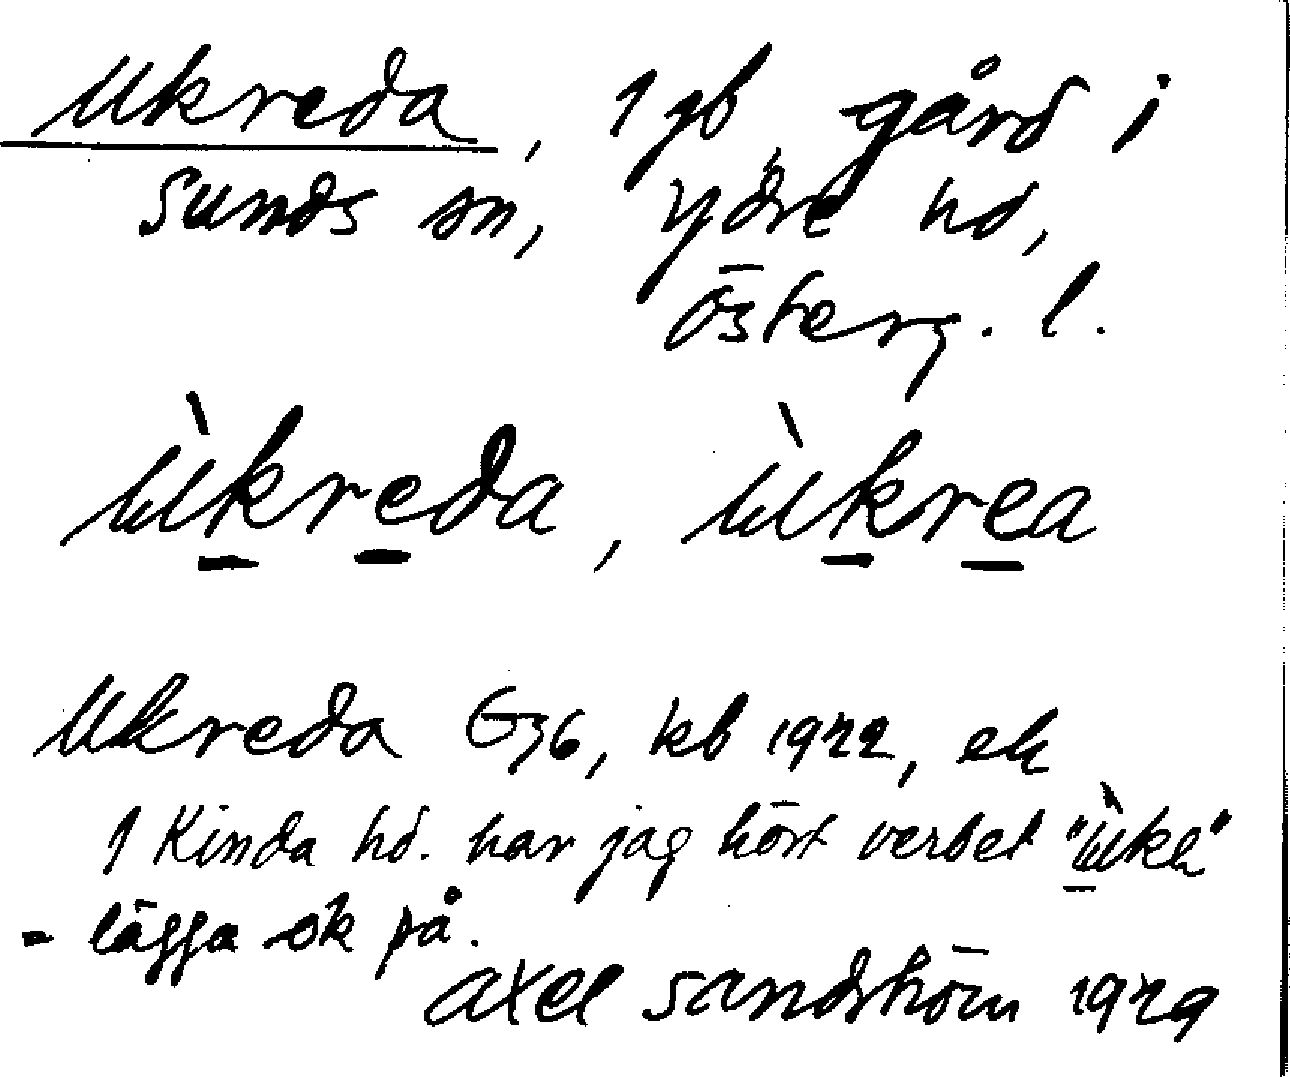 Ukreda, 1 gb gård i
Sunds sn, Ydre hd,
Österg. l.
ùkreda, ùkrea
Ukreda G36, kb 1922, ek
I Kinda hd. har jag hört verbet "ùka"
= lägga ok på.
Axel Sandström 1929